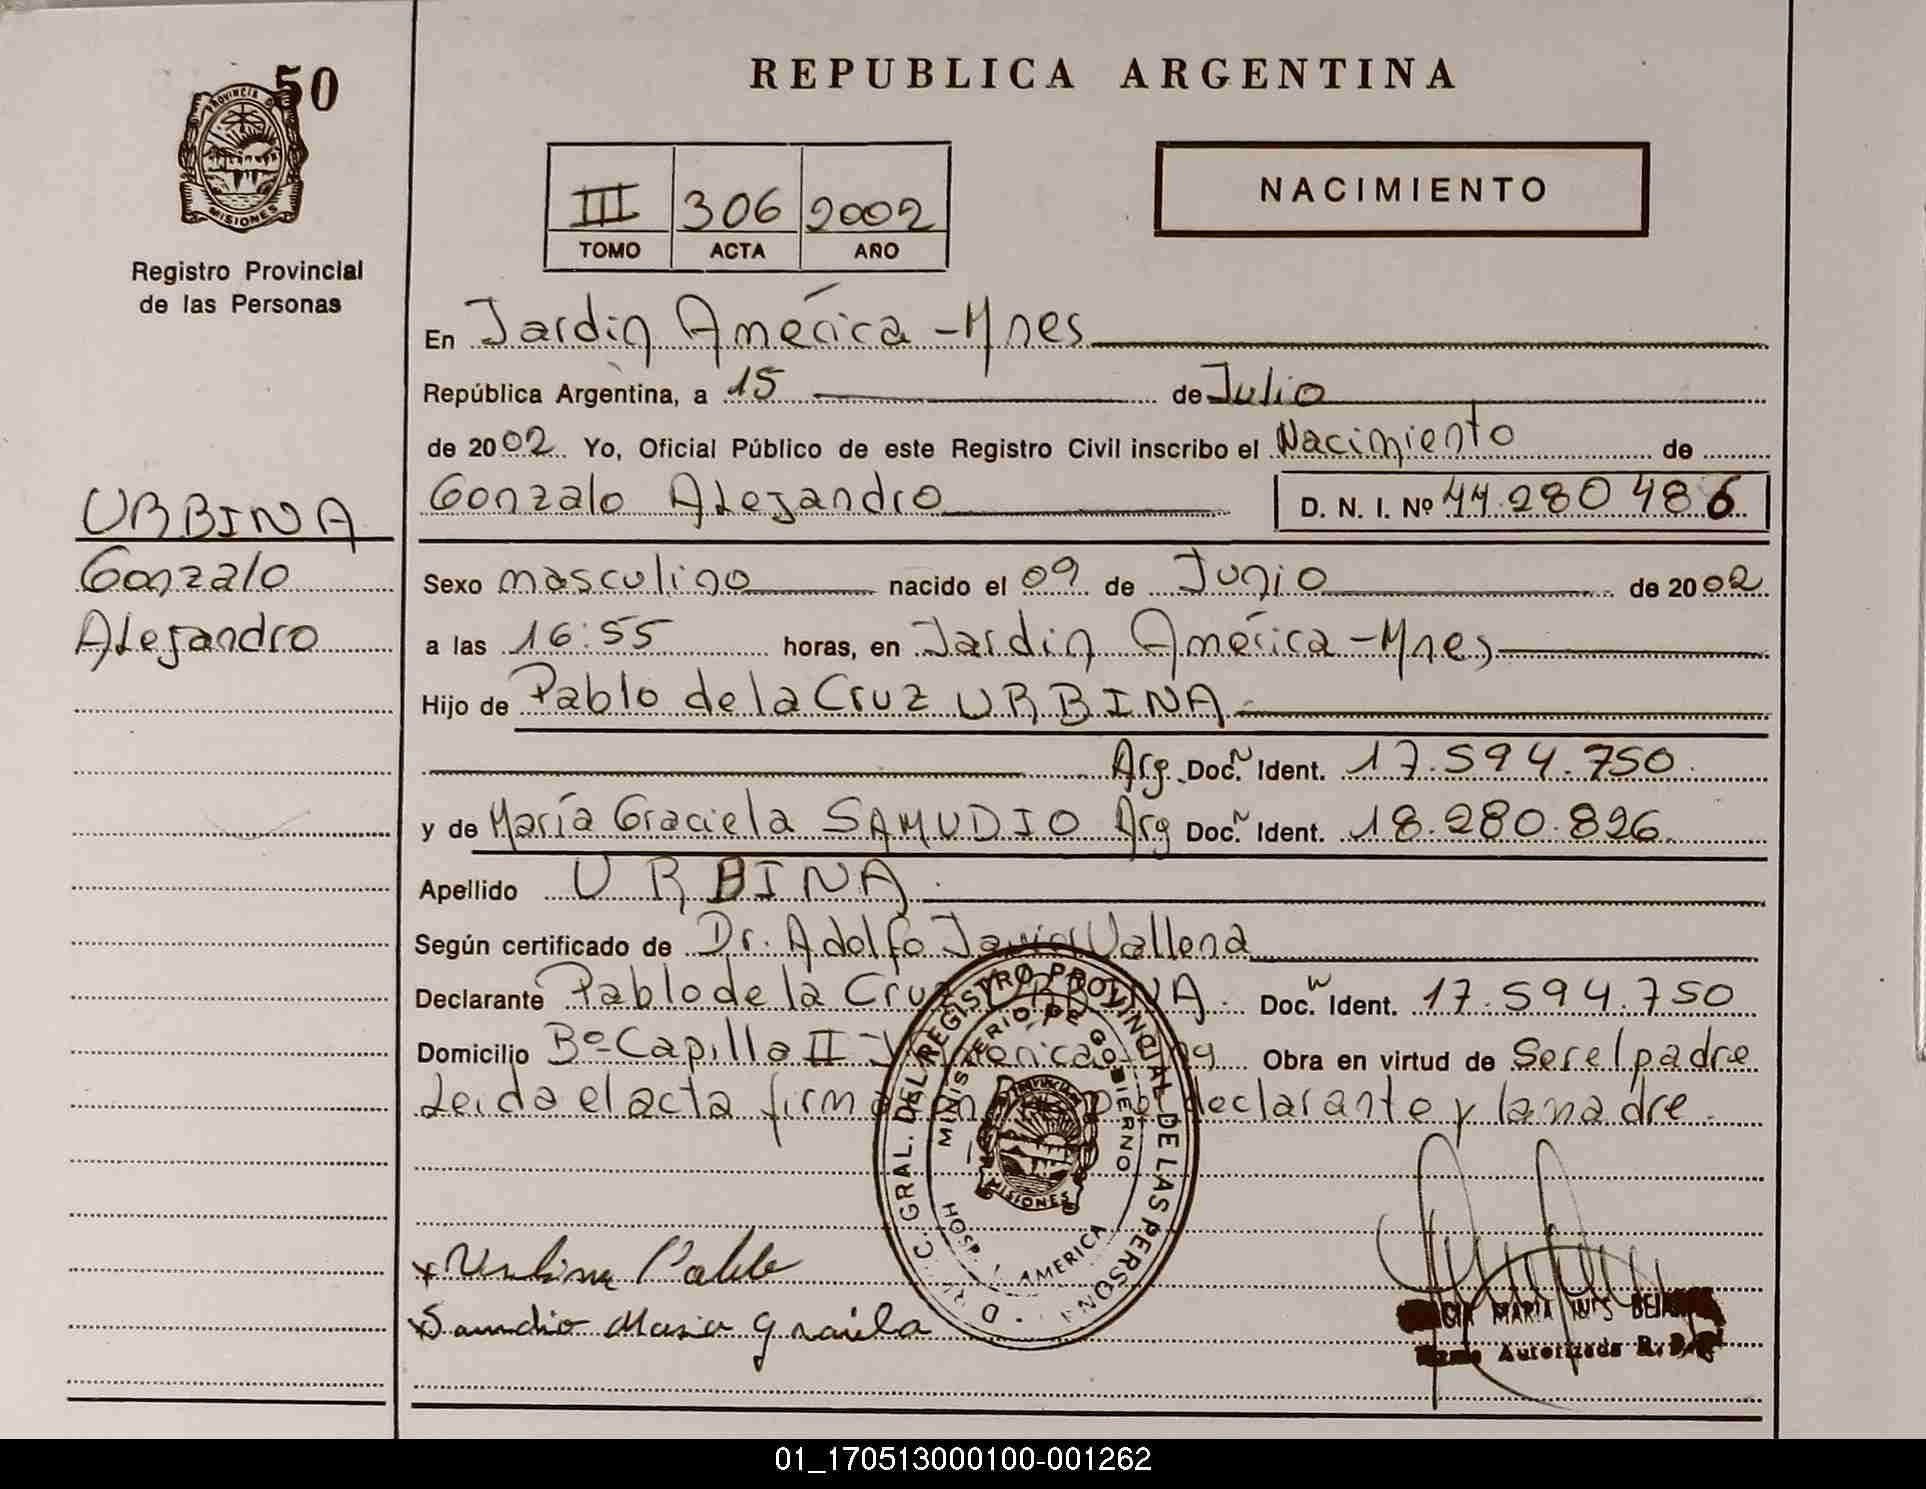 50
PROVINCIA D
MISIONES
Registro Provincial
de las Personas
URBINA
Gonzalo
Alejandro
REPUBLICA ARGENTINA
III 306 2002
TOMO ACTA AÑO
NACIMIENTO
En Jardin América - Mnes
República Argentina, a 15 de Julio
de 2002 Yo, Oficial Público de este Registro Civil inscribo el Nacimiento de
Gonzalo Alejandro D. N. I. Nº 44.280 486
Sexo masculino nacido el 09 de Junio de 2002
a las 16:55 horas, en Jardin América - Mnes
Hijo de Pablo de la Cruz URBINA
Arg. Doc. N Ident. 17.594.750
y de María Graciela SAMUDIO Arg Doc. N Ident. 18.280.826
Apellido URBINA
Según certificado de Dr. Adolfo Javier Vallena
Declarante Pablo de la Cruz URBINA. Doc. N Ident. 17.594.750
Domicilio Bº Capilla II J. América Obra en virtud de Ser el padre
Leida el acta firman declarante y la madre.
GRAL. DEL REGISTRO PROVINCIAL DE LAS PERSONA
MINISTERIO DE GOBIERNO
Provincia
MISIONES
HOSP. J. AMERICA
x Urbina Pablo
x Samudio Maria Graciela
MARIA INES
Autorizada R.P.P.
01_170513000100-001262